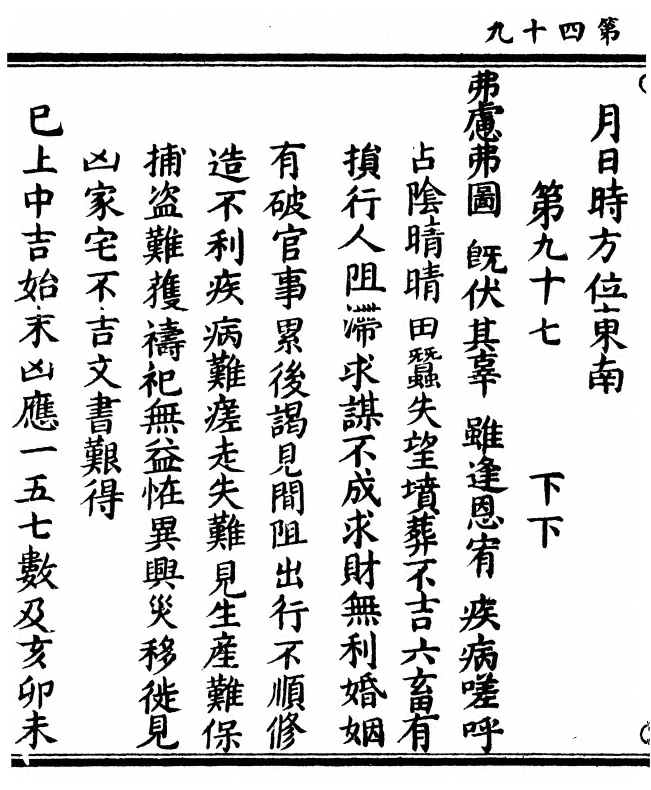 第四十九
月日時方位東南
第九十七 下下
弗慮弗圖 旣伏其辜 雖逢恩宥 疾病嗟呼
占陰晴晴田蠶失望墳葬不吉六畜有
損行人阻滯求謀不成求財無利婚姻
有破官事累後謁見間阻出行不順修
造不利疾病難瘥走失難見生產難保
捕盜難獲禱祀無益恠異興災移徙見
凶家宅不吉文書艱得
巳上中吉始末凶應一五七數及亥卯未